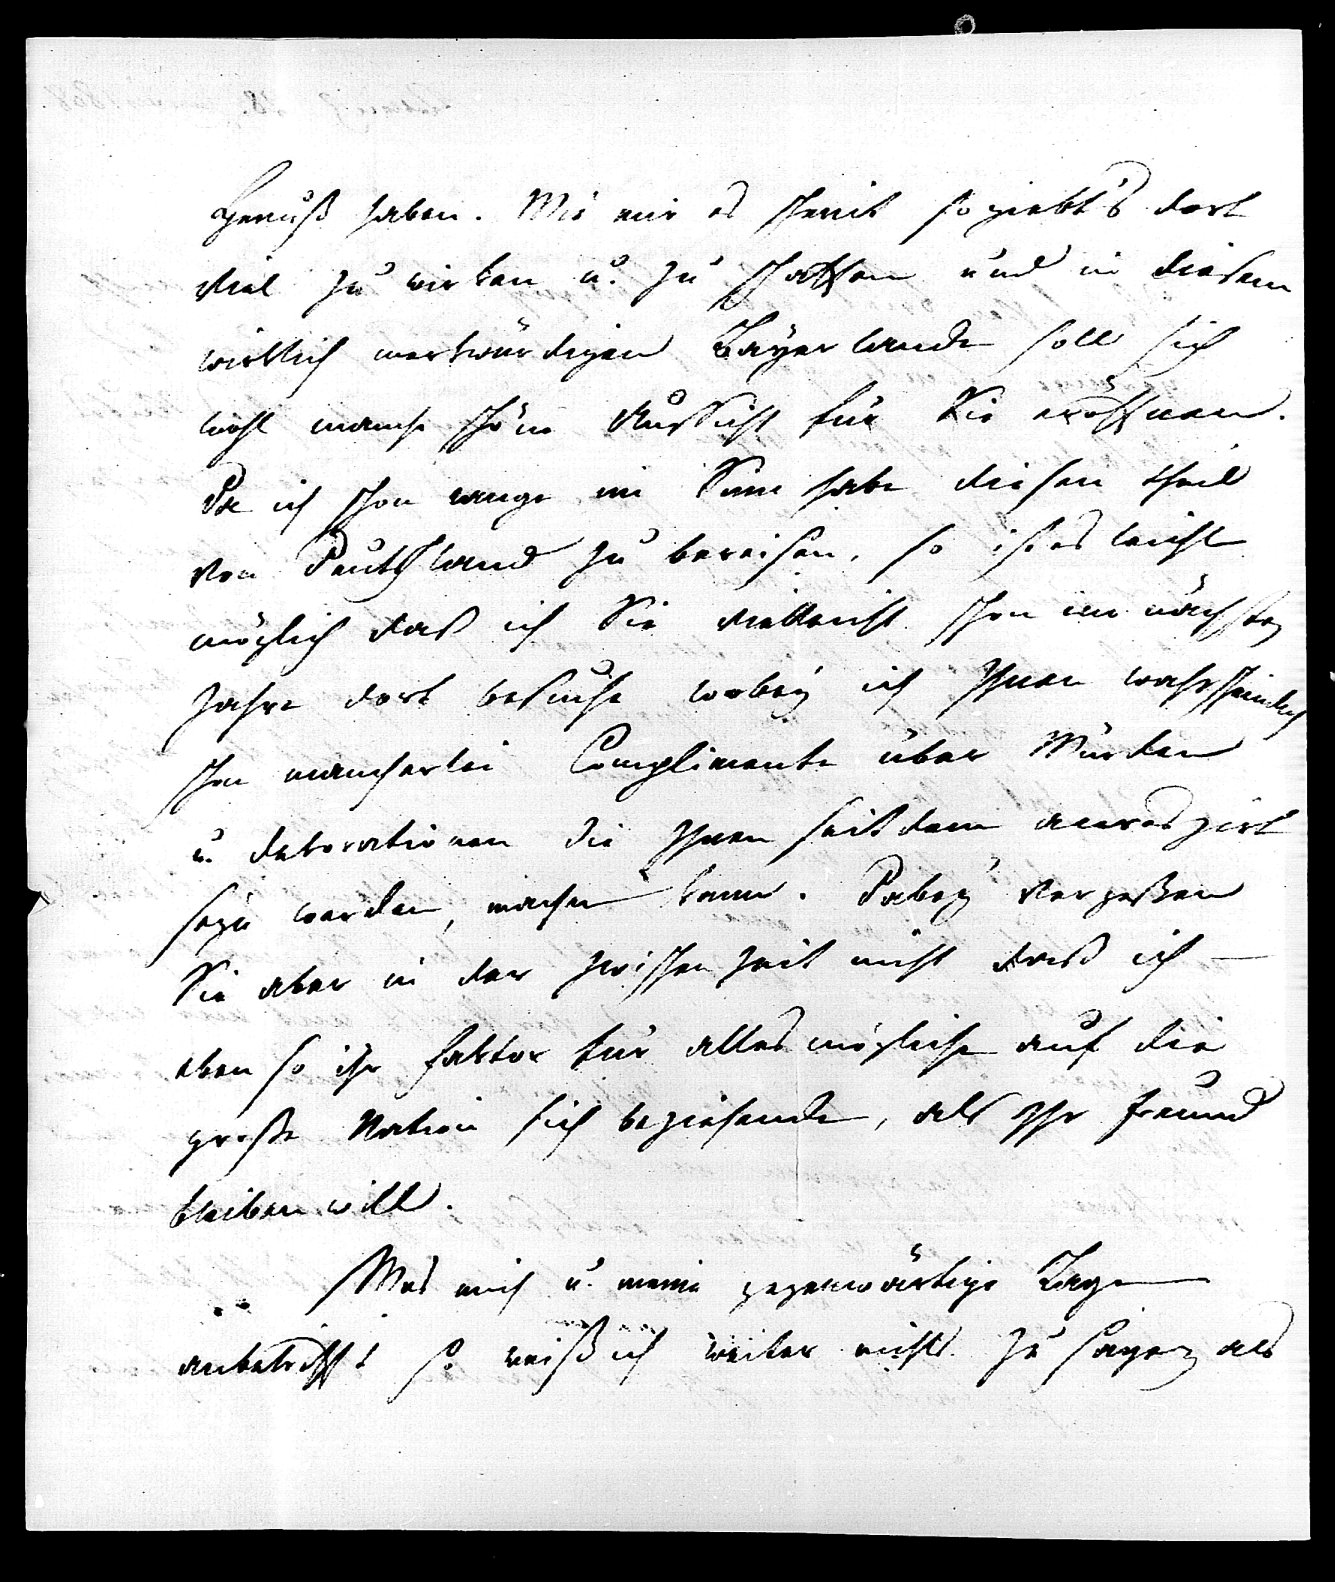 Genuß haben. Wie mir es scheint so giebt's dort
viel zu wirken u. zu schaffen und in diesem
wirklich merkwürdigen Bayerlande soll sich
wohl manche schöne Aussicht für Sie eröffnen.
Da ich schon lange im Sinne habe diesen theil
von Deutschland zu bereisen, so ist es leicht
möglich daß ich Sie vielleicht schon im nächsten
Jahre dort besuche wobey ich Ihnen wahrscheinlich
schon mancherlei Complimente über Würden
u. dekorationen die Ihnen seitdem
seyn werden, machen kann. Dabey vergeßen
Sie aber in der zwischen zeit nicht daß ich –
eben so ihr faktor für alles mögliche auf die
große Nation sich beziehende, als Ihr freund
bleiben will.
Was mich u. meine gegenwärtige Lage
anbetrifft so weiß ich weiter nichts zu sagen als